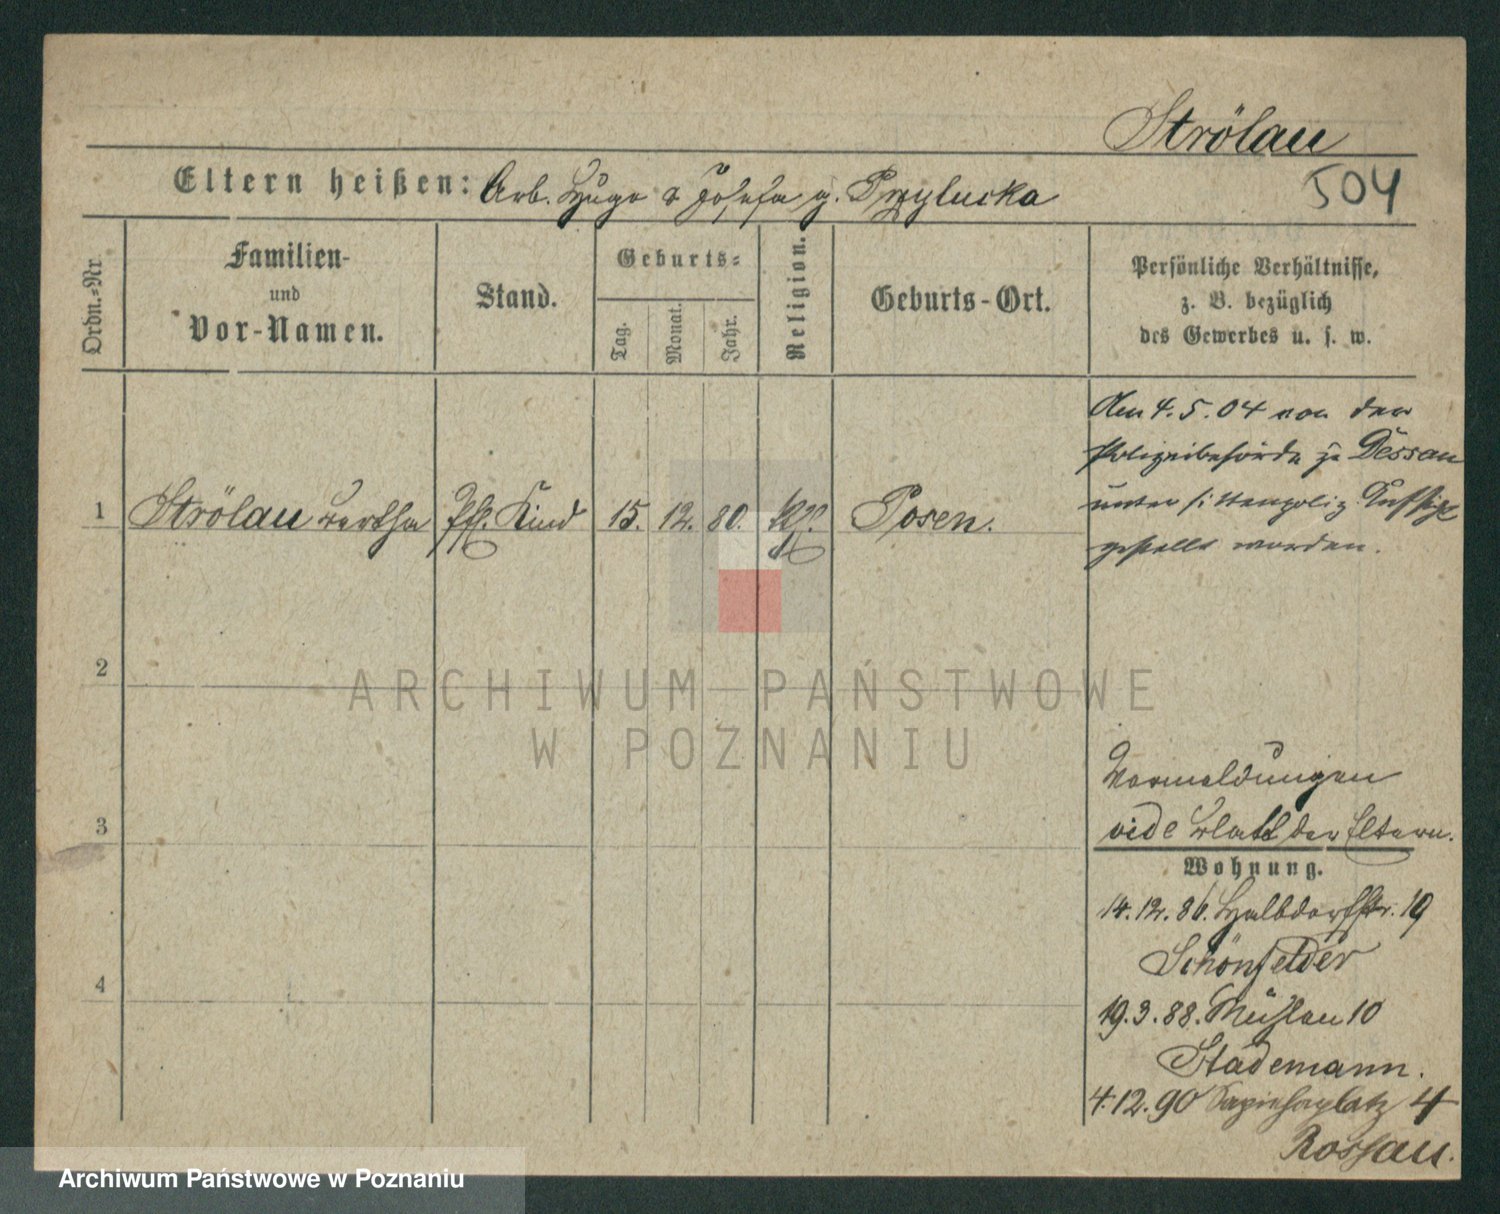 Strölau
504
Eltern heißen: Arb. Hugo & Josefa g. Przylucka
Ordn.-Nr.
Familien-
und
Vor-Namen.
Stand.
Geburts-
Tag.
Monat.
Jahr.
Religion.
Geburts-Ort.
Persönliche Verhältnisse,
z. B. bezüglich
des Gewerbes u. s. w.
Am 4.5.04 von der
Polizeibehörde zu Dessau
unter sittenpoliz Aufsicht
gestellt worden.
1 Strölau Bertha Pfl. Kind 15. 12. 80. Posen.
2
ARCHIWUM PAŃSTWOWE
W POZNANIU
Vormeldungen
vide Blatt der Eltern.
3
Wohnung.
14.12.86. Halbdorfstr. 19
Schönfelder
4
19.3.88. Mühlen 10
Stademann.
4.12.90 Sapiehaplatz 4
Rossau.
Archiwum Państwowe w Poznaniu